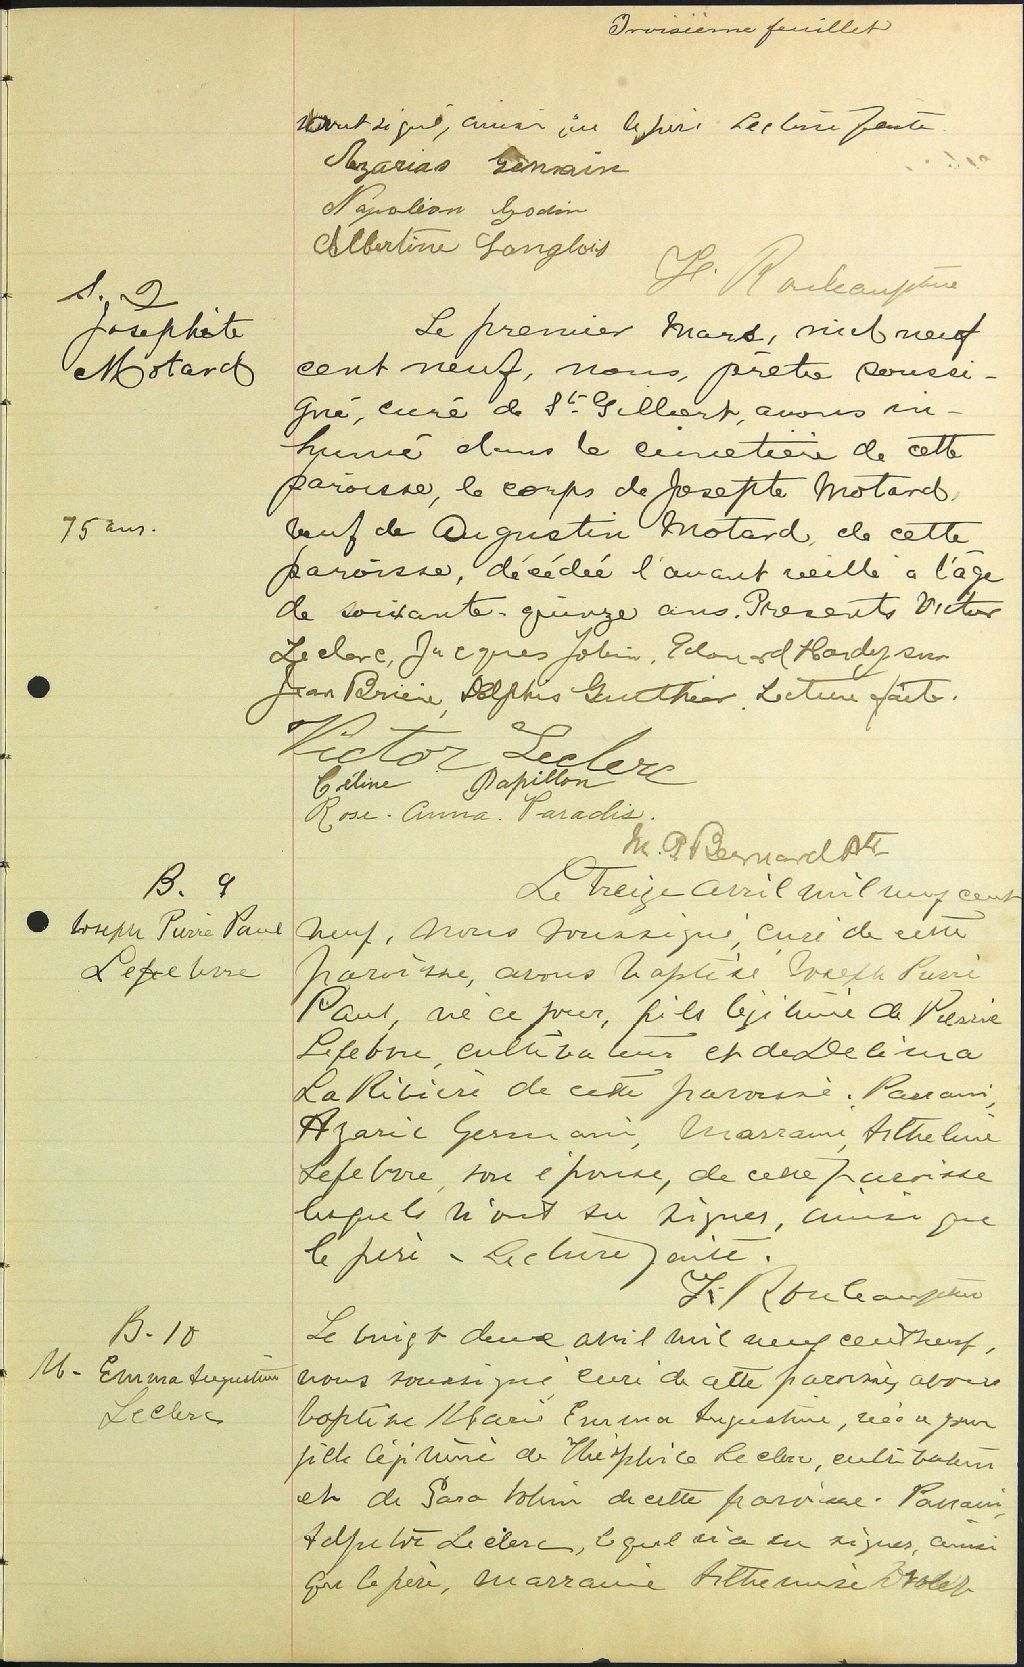 Troisième feuillet
ont signé, ainsi que le père Lecture faite
Azarias Germain
Napoléon Godin
Albertine Langlois
F. Rouleau ptre
S. 2
Josephte
Motard
75 ans.
Le premier Mars, mil neuf
cent neuf, nous, prêtre soussi-
gné, curé de St. Gilbert, avons in-
humé dans le cimetière de cette
paroisse, le corps de Josepte Motard,
veuf de Augustin Motard, de cette
paroisse, décédée l'avant veille a l'âge
de soixante-quinze ans. Présents Victor
Leclerc, Jacques Jobin, Edouard Hardy
Jean Brière, Delphis Gauthier. Lecture faite.
Victor Leclerc
Céline Papillon
Rose-Anna Paradis.
M. P. Bernard Ptr
B. 9
Joseph Pierre Paul
Lefebvre
Le treize avril mil neuf cent
neuf, nous soussigné, curé de cette
paroisse, avons baptisé Joseph Pierre
Paul, né ce jour, fils légitime de Pierre
Lefebvre, cultivateur et de Delima
LaRivière de cette paroisse. Parrain,
Azarie Germain, Marraine,
Lefebvre, son épouse, de cette paroisse
lesquels n'ont su signer, ainsi que
le père - Lecture faite.
F. Rouleau ptre
B. 10
M- Emma Augustine
Leclerc
Le vingt deux avril mil neuf cent neuf,
nous soussigné, curé de cette paroisse, avons
baptisé Marie Emma Augustine, née ce jour
fille légitime de Théophile Leclerc, cultivateur
et de Sara Jobin de cette paroisse. Parrain,
Leclerc, lequel n'a su signer, ainsi
que le père, marraine Arthemise Drolet